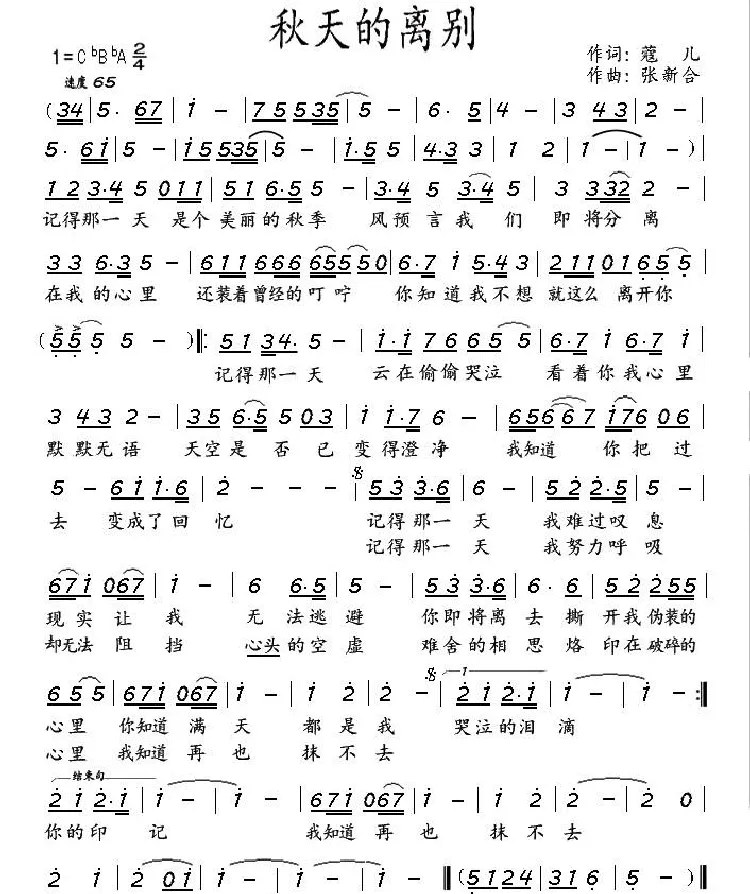 秋天的离别
1=C ᵇB ᵇA 2/4
作词: 蔻 儿
速度 65
作曲: 张新合
(34 | 5· 67 | 1 - | 75 535 | 5 - | 6· 5 | 4 - | 3 43 | 2 - |
5· 61 | 5 - | 15 535 | 5 - | 1·5 5 | 4·3 3 | 1 2 | 1 - | 1 - ) |
12 3·4 5 011 | 51 6·5 5 | 3·4 5 3·4 | 5· 3 332 | 2 - |
记得那一 天 是个 美丽的秋季 风预言我 们 即将分 离
33 6·3 5 - | 611 666 655 550 | 6·7 1 5·43 | 211 01 6 5 5 |
在我 的心里 还装着曾经的叮咛 你知道我不想 就这么 离开你
( 55 5 5 - ) ‖: 51 34· 5 - | 1·1 76 65 5 | 6·7 1 6·7 |
记得那一天 云在偷偷哭泣 看着你我心里
3 43 2 - | 35 6·5 5 03 | 1 1·7 6 | 656 67 176 06 |
默默无语 天空是 否 已 变得澄净 我知道 你把过
5 - 61 1·6 | 2 - - | 53 3·6 6 - | 52 2·5 5 |
去 变成了回 忆 记得那一 天 我难过叹 息
记得那一 天 我努力呼 吸
671 067 | 1 - | 6 6·5 | 5 - | 53 3·6 | 6· 6 | 52 255 |
现实让 我 无 法逃 避 你即将离 去 撕 开我伪装的
却无法 阻 挡 心头的空 虚 难舍的相 思 烙 印在破碎的
655 | 671 067 | 1 - | 1 2 | 2 - | 1 21 2·1 | 1 - | 1 - :‖
心里 你知道 满 天 都 是 我 哭泣的泪 滴
心里 我知道 再 也 抹 不 去
结束句
21 2·1 | 1 - | 1 - | 671 067 | 1 - | 1 2 | 2 - | 2 0 |
你的印 记 我知道 再 也 抹 不 去
2 1 | 2 01 | 1 - | 1 - | 1 - ‖ (5124 | 31 6 | 5 - ) |